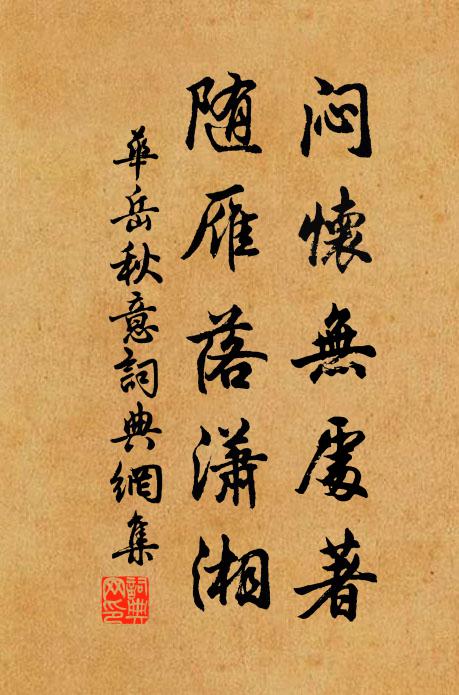 闷懷無處著
随雁落瀟湘
華岳秋意詞典網集
詞典
网印